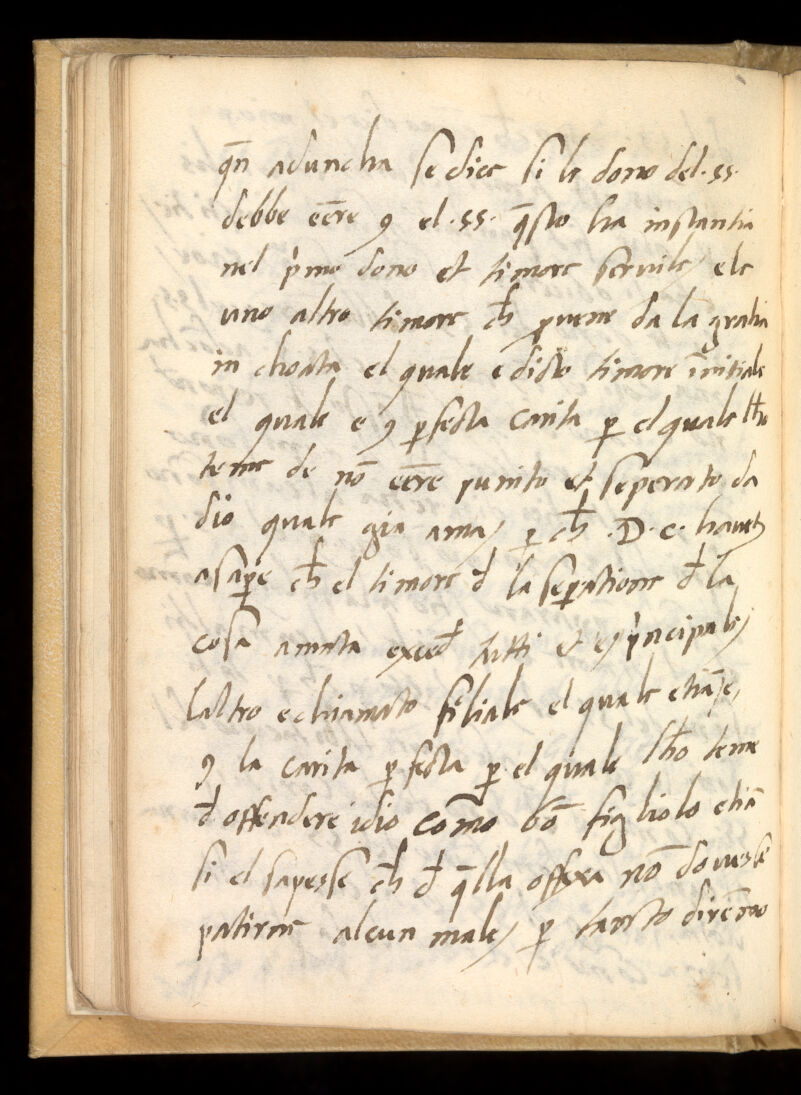 qn̄ aduncha se dice si le dono del .ss.
debbe eēre ꝯ el .ss. q̄sto ha instantia
nel p̓mo dono et timore servile / ele
uno altro timore ch̄ ꝓuene da la gratia
in choata el quale e dicto timore īnitiale
el quale e ꝯ ꝑfecta carita ꝑ el quale lho
teme de nō eēre punito et seperato da
dio quale gia ama / ꝑ ch̄ .D.c. haueti
asaꝑe ch̄ el timore đ la seꝑatione đ la
cosa amata exceđ tutti et e p̓ncipale /
laltro e chiamato filiale el quale etiā e,
ꝯ la carita ꝑfecta ꝑ el quale lho teme
đ offendere idio como bō figliolo etiā
si el sapesse ch̄ đ q̄lla offexa nō douesse
patirne alcun male / ꝑ tancto dirēmo